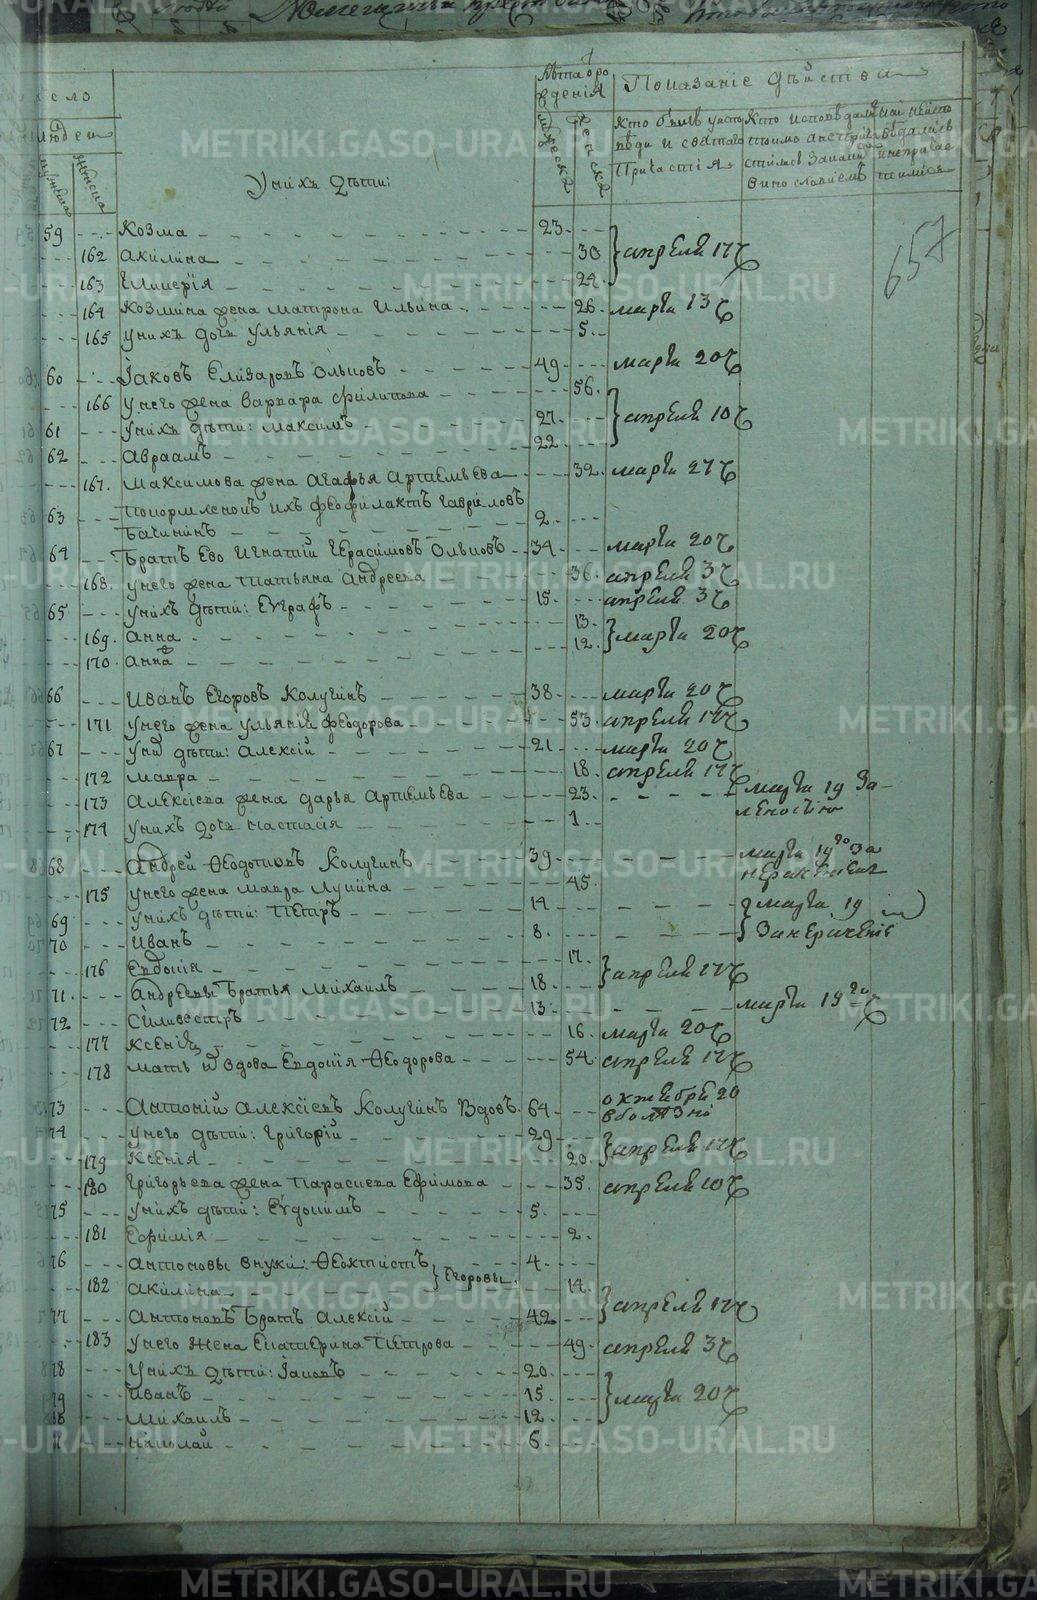 число
людей
мужеска
женска
Унихъ дѣти:
Лѣта отро
ждения
мужеска
женска
Показаніе дѣйства
Кто былъ уиспо
вѣди и святаго
Причастія
Кто исповѣдал
ся токмо а непри
чистился
виносло­віемъ
657
59 Козма 23
162 Акилина 30 } апреля 17 ч
163 Гликерія 24
164 Козмина жена Матрона Ильина 26 марта 13 ч
165 унихъ дочь Ульянія 5
60 Іаковъ Елизаровъ Ольховъ 49 марта 20 ч
166 унего жена Варвара Филипова 56
61 унихъ дѣти: Максимъ 27 } апреля 10 ч
62 Авраамъ 22
167 Максимова жена Агафья Артемьева 32 марта 27 ч
63 покормленой ихъ Феофилактъ Гавриловъ
2
64 Братъ Ево Игнатій Герасимовъ Ольховъ 34 марта 20 ч
168 унего жена Татьяна Андреева 36 апреля 3 ч
65 унихъ дѣти: Евграфъ 15 апреля 3 ч
169 Анна 13
170 Анна 12 } марта 20 ч
66 Иванъ Егоровъ Колугинъ 38 марта 20 ч
171 унего жена Ульянія Феодорова 53 апреля 17 ч
67 уних дѣти: Алексій 21 марта 20 ч
172 Мавра 18 апреля 17 ч
173 Алексіева жена Дарья Артемьева 23 марта 19 за
леностію
174 унихъ дочь Настасія 1
68 Андрей Ѳеодотовъ Колугинъ 39 марта 19го за
175 унего жена Мавра Лукина 45
69 унихъ дѣти: Петръ 14 } марта 19
70 Иванъ 8
176 Евдокія 17 } апреля 17 ч
71 Андреевы братья Михаилъ 18
72 Силивестръ 13 марта 19го ч
177 Ксенія 16 марта 20 ч
178 мать и вдова Евдокія Ѳеодорова 54 апреля 17 ч
73 Антоній Алексіевъ Колугинъ вдовъ 64 октября 20
74 унего дѣти: Григорій 29 } апреля 17 ч
179 Ксенія 20
180 Григорьева жена Параскева Ефимова 35 апреля 10 ч
75 унихъ дѣти: Евдокимъ 5
181 Ефимія 2
76 Антоновы внуки: Ѳеоктистъ } Егоровы 4
182 Акилина 14
77 Антоновъ братъ Алексій 42 } апреля 17 ч
183 унего жена Екатерина Петрова 49 апреля 3 ч
78 унихъ дѣти: Іаковъ 20
79 Иванъ 15 } марта 20 ч
Михаилъ 12
Николай 6
METRIKI.GASO-URAL.RU